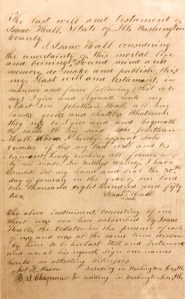 The last will and testament of
Isaac Hall, State of Ills Washington
County.
I, Isaac Hall considering
the uncertainty of this mortal life
and being of sound mind and
memory do make and publish this
my last Will and testament, in
manner and form following (that is to
say) I give and bequeath unto
my Son Jonathan Hall, all my
lands, goods and chattles
beneath
the same to
Hall whom I hereby appoint sole
executor of this my last will and tes
tament; hereby revoking all former wills
by me made. In witness whereof, I have
hereunto set my hand and seal the 30
day of January in the year of our Lord
one thousand eight hundred and fifty
two.
Isaac Hall
The above instrument consisting of one
sheet was now here subscribed by Isaac
Hall, the testator in the presence of each
of us, and was at the same time declared
by him to be his last Will and Testament
and we at his request sign our names
hereto as attesting witnesses
residing in Washington County Ills
B. S. Chapman residing in Washington County Ills